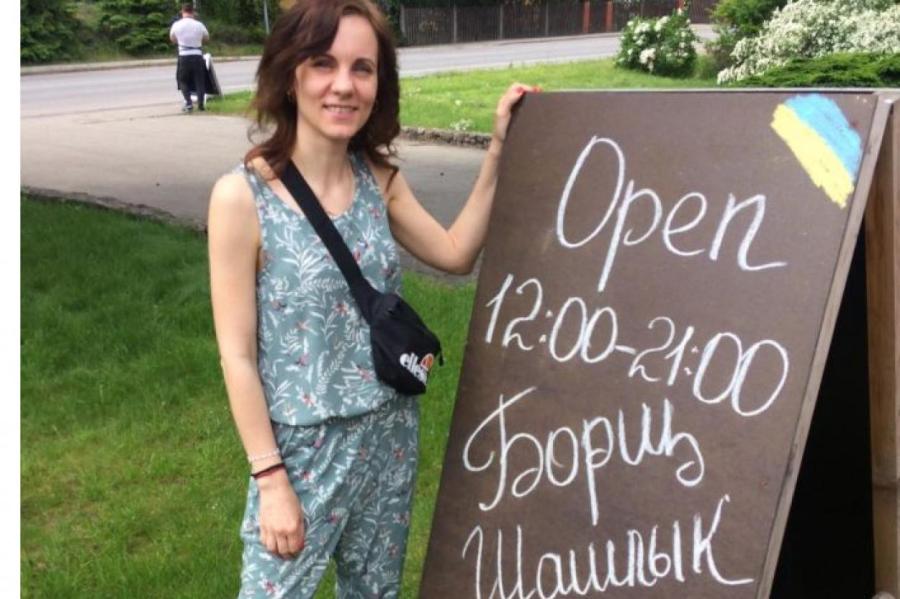 Open
12:00-21:00
Борщ
Шашлык
ellesse